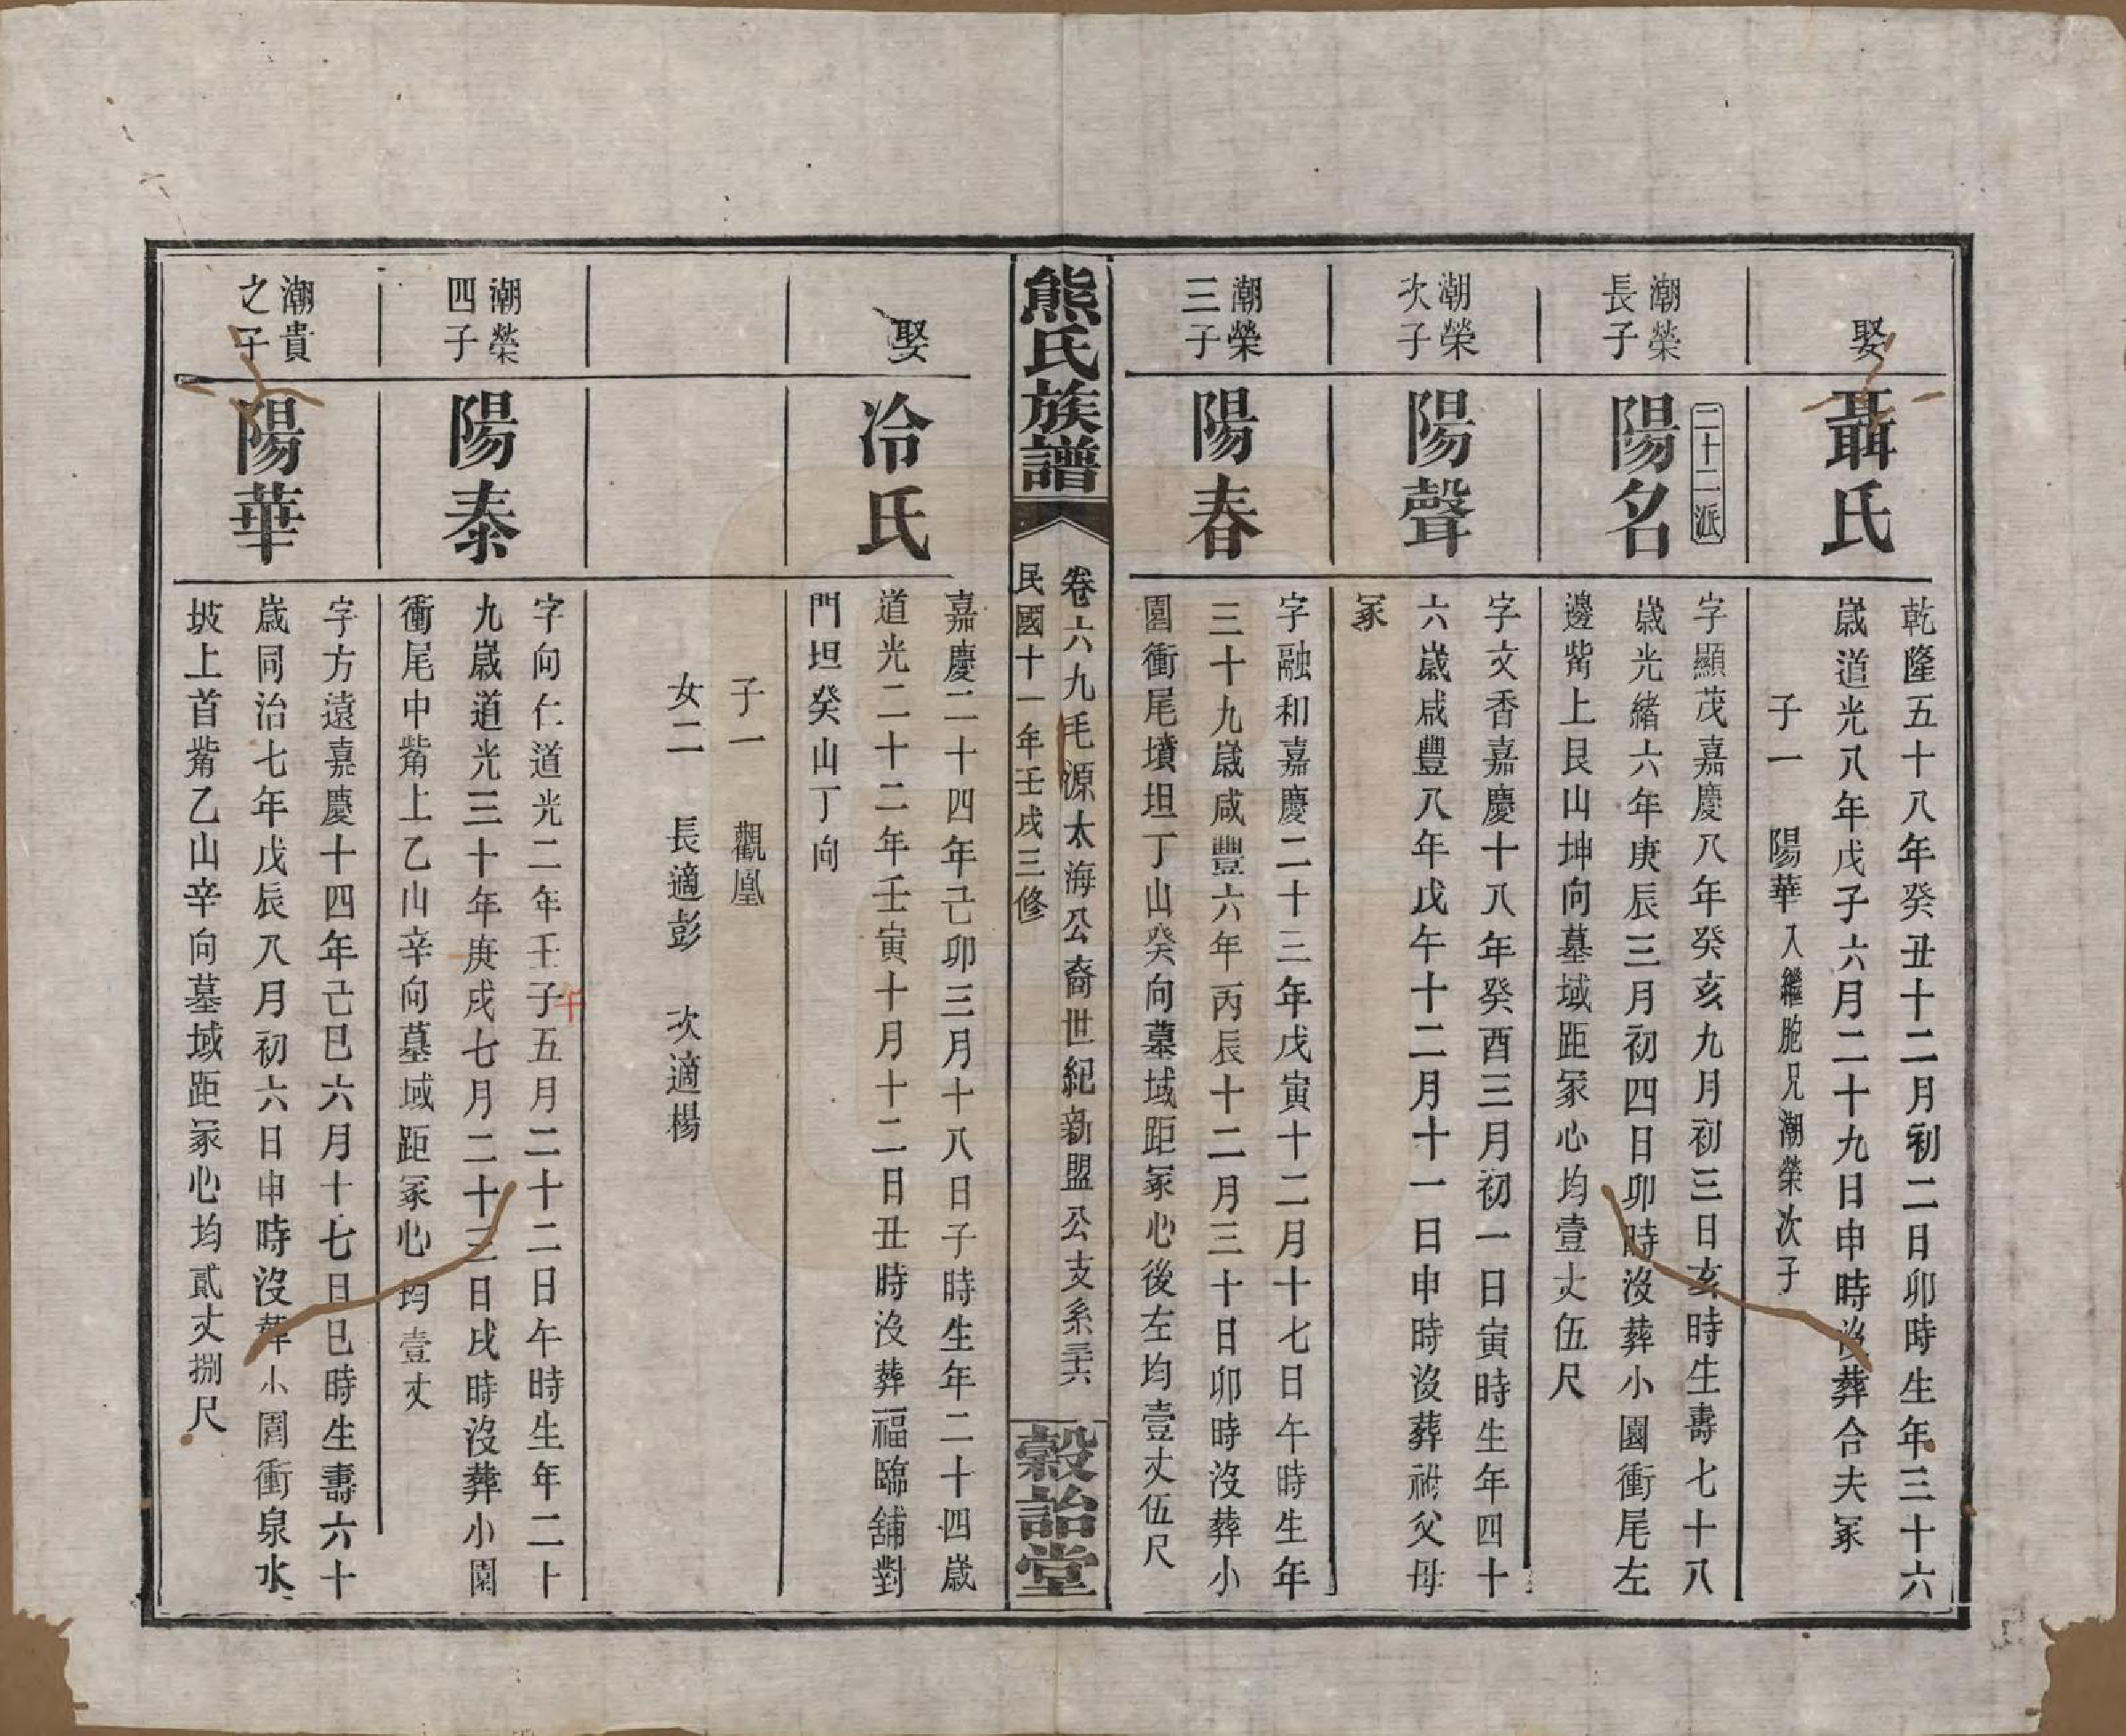 娶
聶氏
乾隆五十八年癸丑十二月初二日卯時生年三十六
歲道光八年戊子六月二十九日申時沒葬合夫冢
子一　陽華入繼胞兄潮榮次子
二十二派
潮榮
長子
陽名
字顯茂嘉慶八年癸亥九月初三日亥時生壽七十八
歲光緒六年庚辰三月初四日卯時沒葬小園衝尾左
邊嘴上艮山坤向墓域距冢心均壹丈伍尺
潮榮
次子
陽聲
字文香嘉慶十八年癸酉三月初一日寅時生年四十
六歲咸豐八年戊午十二月十一日申時沒葬祔父母
冢
潮榮
三子
陽春
字融和嘉慶二十三年戊寅十二月十七日午時生年
三十九歲咸豐六年丙辰十二月三十日卯時沒葬小
園衝尾墳坦丁山癸向墓域距冢心後左均壹丈伍尺
熊氏族譜
卷六九毛源太海公裔世紀新盟公支系三六
民國十一年壬戌三修
穀詒堂
娶
冷氏
嘉慶二十四年己卯三月十八日子時生年二十四歲
道光二十二年壬寅十月十二日丑時沒葬福臨舖對
門坦癸山丁向
子一　觀凰
女二　長適彭　次適楊
潮榮
四子
陽泰
字向仁道光二年壬子五月二十二日午時生年二十
午
九歲道光三十年庚戌七月二十三日戌時沒葬小園
衝尾中嘴上乙山辛向墓域距冢心均壹丈
潮貴
之子
陽華
字方遠嘉慶十四年己巳六月十七日巳時生壽六十
歲同治七年戊辰八月初六日申時沒葬小園衝泉水
坡上首嘴乙山辛向墓域距冢心均貳丈捌尺